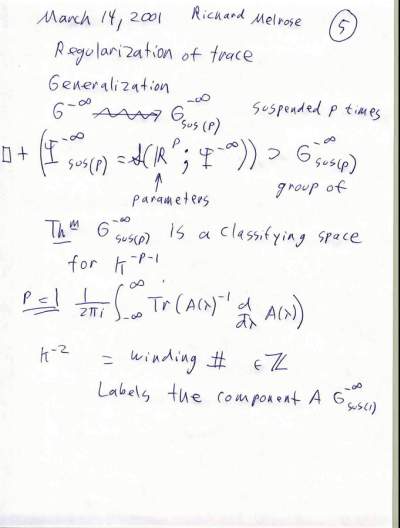 March 14, 2001 Richard Melrose 5
Regularization of trace
Generalization
G^{-∞} ⟿ G^{-∞}_{sus(p)} suspended p times
□ + (Ψ^{-∞}_{sus(p)} = 𝒮(ℝ^p; Ψ^{-∞})) ⊃ G^{-∞}_{sus(p)}
↑ parameters group of
Thm G^{-∞}_{sus(p)} is a classifying space
for K^{-p-1}
p=1 1/2πi ∫_{-∞}^{∞} Tr(A(λ)^{-1} d/dλ A(λ))
K^{-2} = winding # ∈ ℤ
Labels the component A G^{-∞}_{sus(1)}